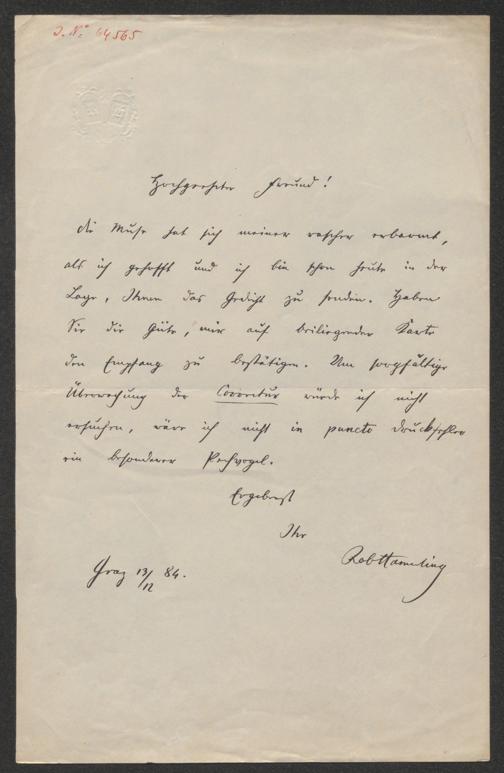 J. N: 64565
Hochgeehrter Freund!
Die Muse hat sich meiner rascher erbarmt,
als ich gehofft und ich bin schon heute in der
Lage, Ihnen das Gedicht zu senden. Haben
Sie die Güte, mir auf beiliegender Karte
den Empfang zu bestätigen. Um sorgfältige
Überwachung der Correctur würde ich nicht
ersuchen, wäre ich nicht in puncto Druckfehler
ein besonderer Pechvogel.
Ergebenst
Ihr
RobHamerling
Graz 13/12 84.